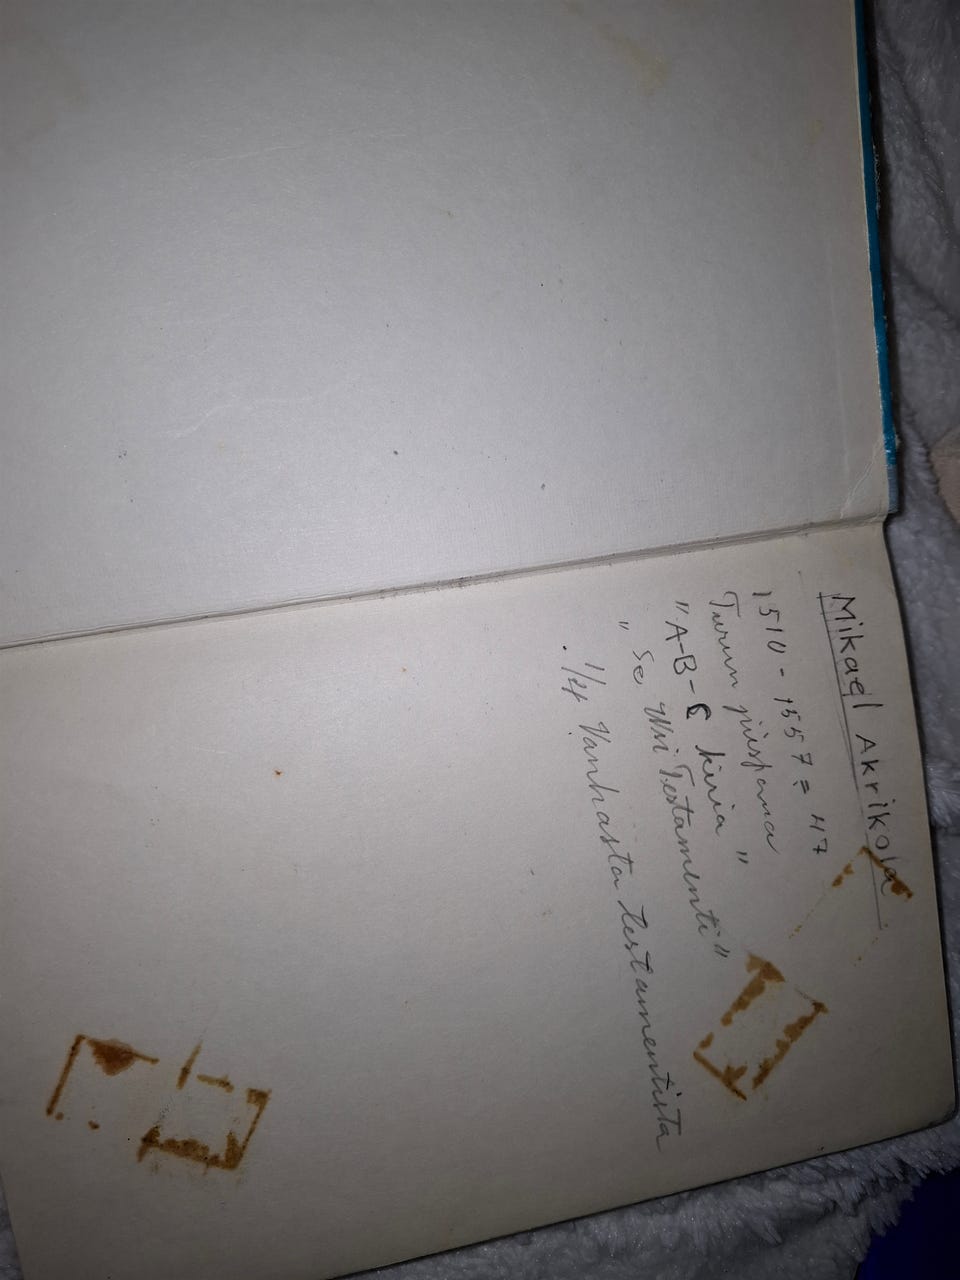 Mikael Akrikola
1510 - 1557 = 47
Turun piispana
"A-B-C kiria"
" Se Wsi Testamenti"
. 1/4 Vanhasta testamentista